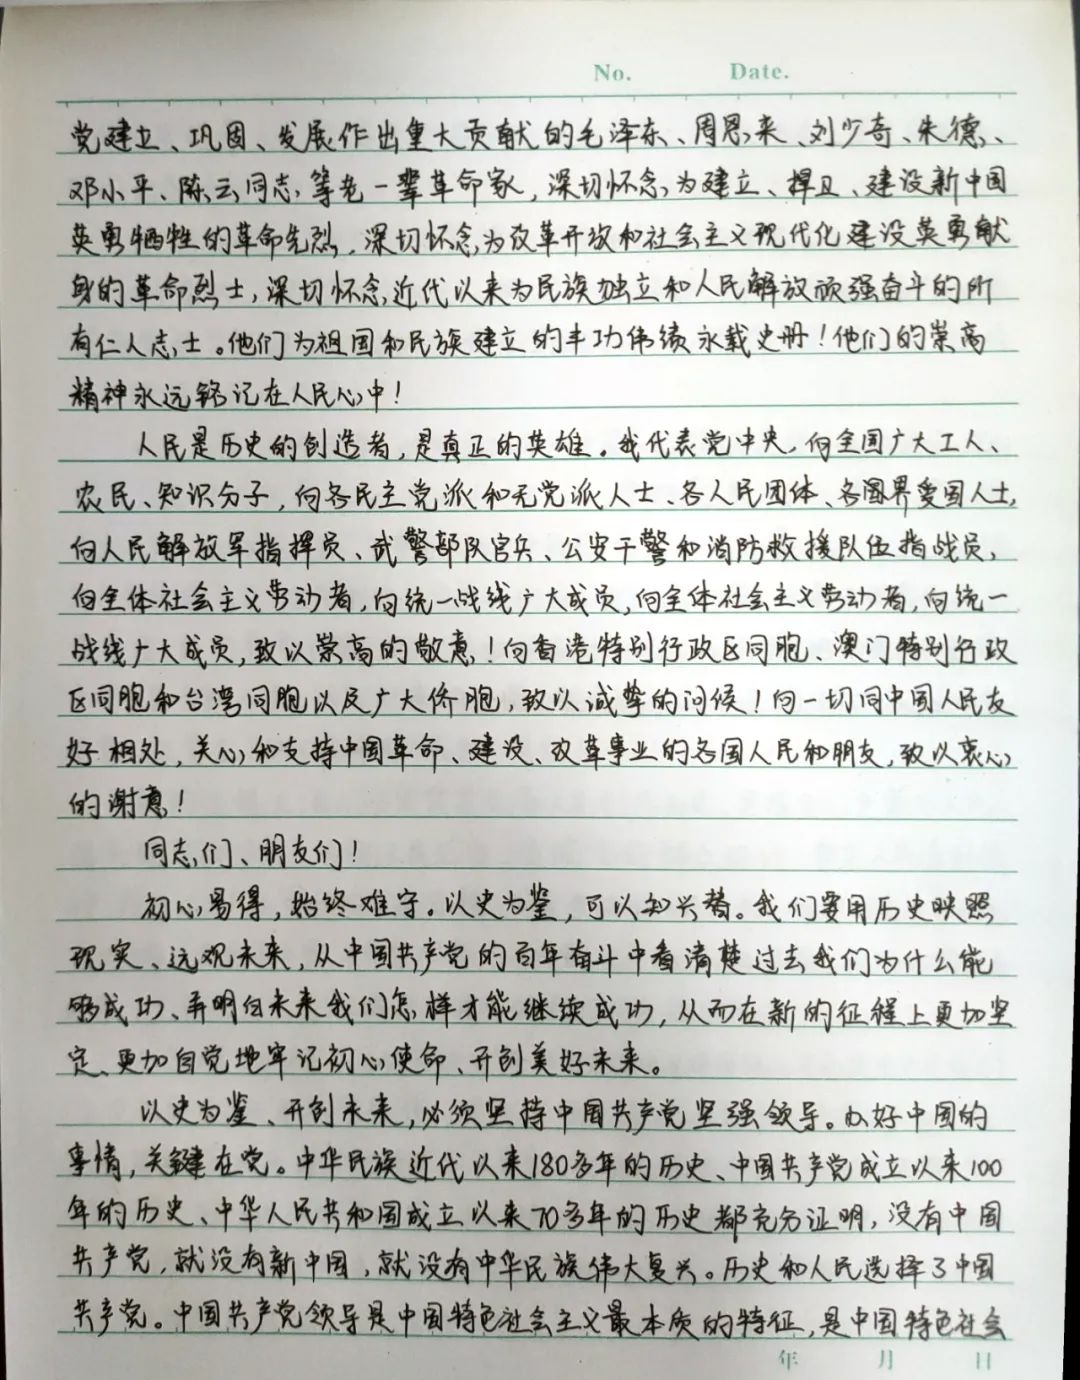 No. Date.
党建立、巩固、发展作出重大贡献的毛泽东、周恩来、刘少奇、朱德、
邓小平、陈云同志等老一辈革命家，深切怀念为建立、捍卫、建设新中国
英勇牺牲的革命先烈，深切怀念为改革开放和社会主义现代化建设英勇献
身的革命烈士，深切怀念近代以来为民族独立和人民解放顽强奋斗的所
有仁人志士。他们为祖国和民族建立的丰功伟绩永载史册！他们的崇高
精神永远铭记在人民心中！
人民是历史的创造者，是真正的英雄。我代表党中央，向全国广大工人、
农民、知识分子，向各民主党派和无党派人士、各人民团体、各界爱国人士，
向人民解放军指挥员、武警部队官兵、公安干警和消防救援队伍指战员，
向全体社会主义劳动者，向统一战线广大成员，向全体社会主义劳动者，向统一
战线广大成员，致以崇高的敬意！向香港特别行政区同胞、澳门特别行政
区同胞和台湾同胞以及广大侨胞，致以诚挚的问候！向一切同中国人民友
好相处，关心和支持中国革命、建设、改革事业的各国人民和朋友，致以衷心
的谢意！
同志们、朋友们！
初心易得，始终难守。以史为鉴，可以知兴替。我们要用历史映照
现实、远观未来，从中国共产党的百年奋斗中看清楚过去我们为什么能
够成功、弄明白未来我们怎样才能继续成功，从而在新的征程上更加坚
定、更加自觉地牢记初心使命、开创美好未来。
以史为鉴、开创未来，必须坚持中国共产党坚强领导。办好中国的
事情，关键在党。中华民族近代以来180多年的历史、中国共产党成立以来100
年的历史、中华人民共和国成立以来70多年的历史都充分证明，没有中国
共产党，就没有新中国，就没有中华民族伟大复兴。历史和人民选择了中国
共产党。中国共产党领导是中国特色社会主义最本质的特征，是中国特色社会
年 月 日